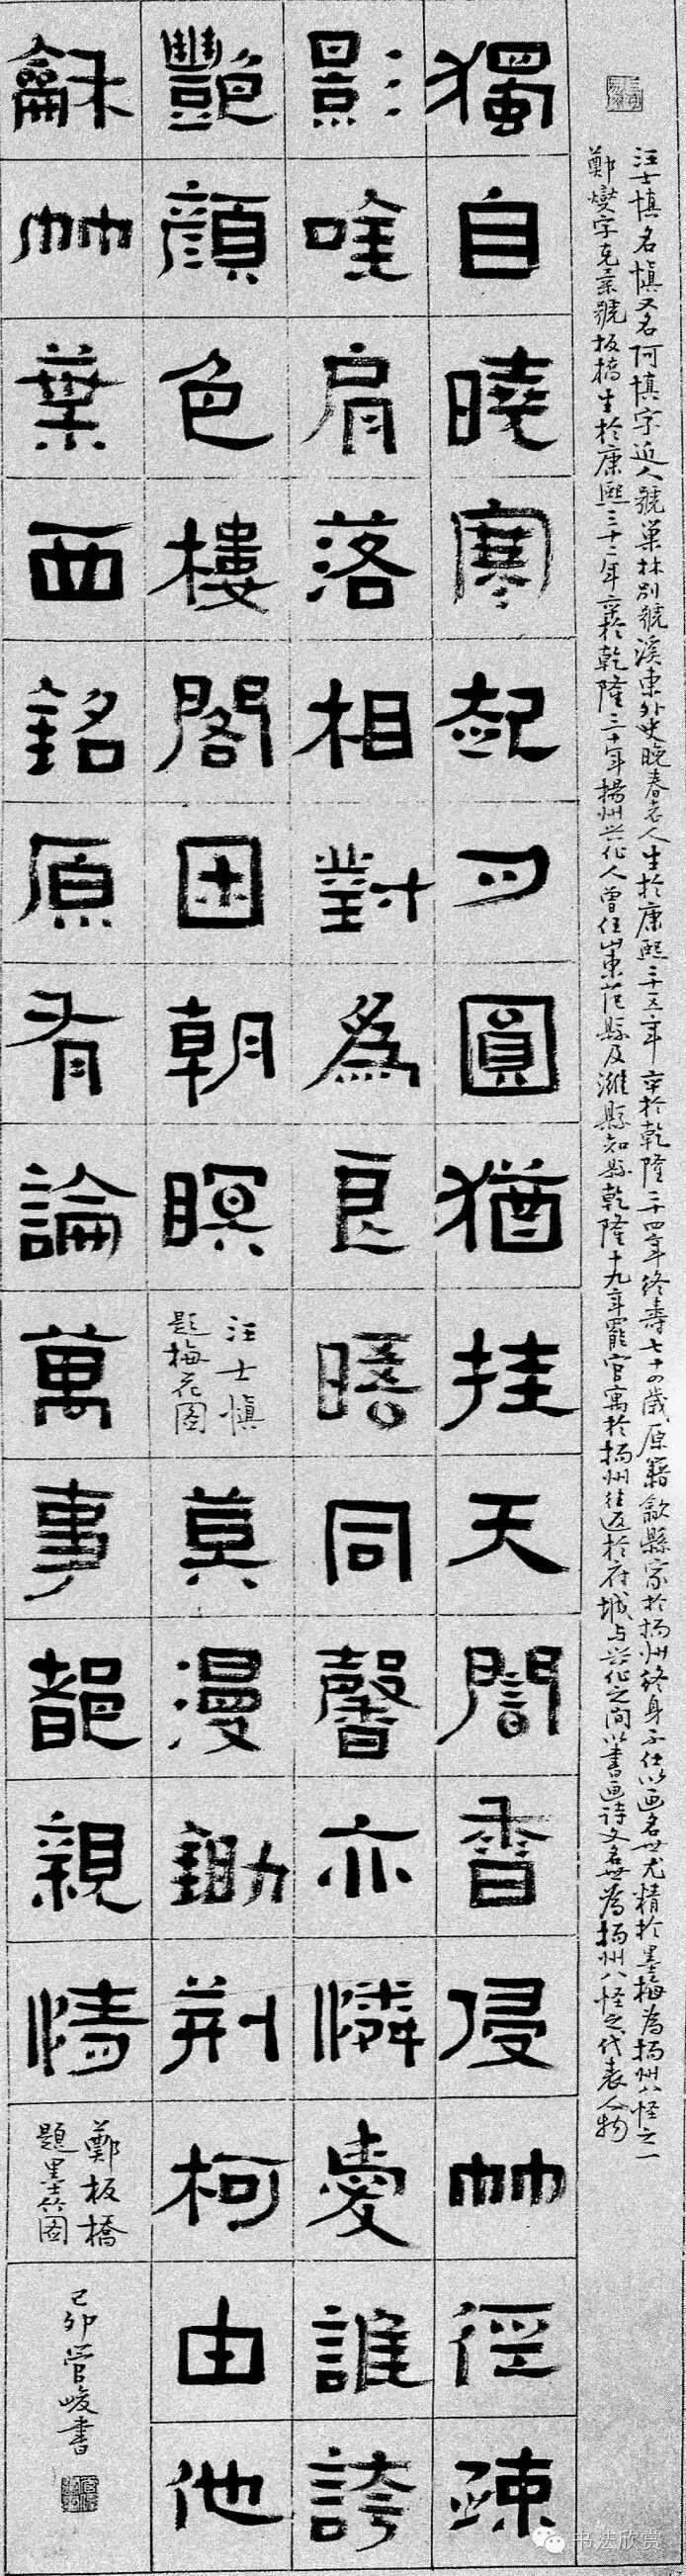 汪士慎名慎又名阿慎字近人號巢林別號溪東外史晚春老人生於康熙二十五年卒於乾隆二十四年終壽七十四歲原籍歙縣家於揚州終身不仕以画名世尤精於墨梅為揚州八怪之一
鄭燮字克柔號板橋生於康熙三十二年卒於乾隆三十年揚州兴化人曾任山東范縣及濰縣知縣乾隆十九年罷官寓於揚州往返於府城与兴化之间以書画诗文名世為揚州八怪之代表人物
獨自曉寒起月圓猶挂天誾香侵竹徑疎
影唫肩落相對為良晤同馨亦憐愛誰誇
豔顏色樓閣困朝暝
汪士慎
題梅花图
莫漫鋤荆柯由他
龢竹葉西銘原有論萬事都親情
鄭板橋
題墨竹图
己卯管峻書
书法欣赏